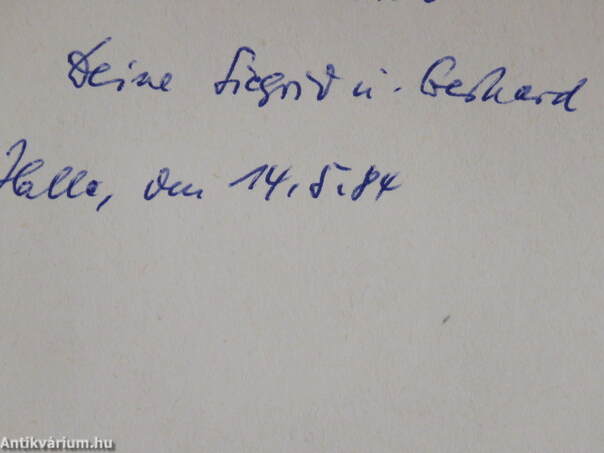 Deine Siegrid u. Gerhard
Halle, den 14.5.84
Antikvárium.hu